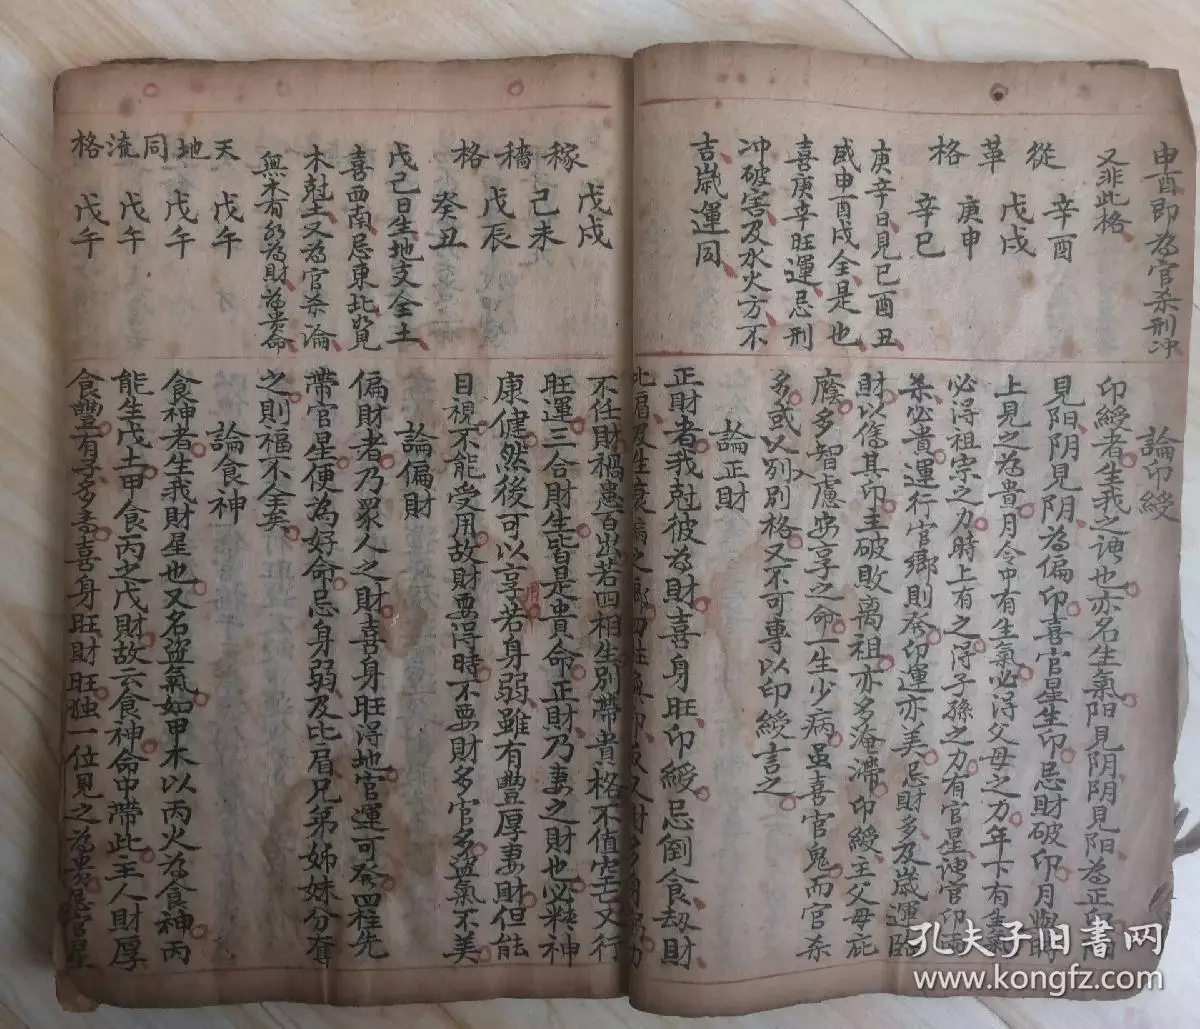 申酉即為官杀刑冲
又非此格
從革格
辛酉
戊戌
庚申
辛巳
庚辛日見巳酉丑
或申酉戌全是也
喜庚辛旺運忌刑
冲破害及水火方不
吉歲運同
論印綬
印綬者生我之神也亦名生氣阳見阴阴見阳為正印
見阳阴見阴為偏印喜官星生印忌財破印月與時
上見之為貴月令中有生氣必得父母之力年下有生氣
必得祖宗之力時上有之得子孫之力有官星神官印
杀必貴運行官鄉則奈印運亦美忌財多及歲運臨
財以傷其印主破敗离祖亦多淹滯印綬主父母庇
蔭多智慮安享之命一生少病虽喜官鬼而官杀
多或入别格又不可專以印綬言之
論正財
正財者我尅彼為財喜身旺印綬忌倒食劫財
不任財禍患百出若四相生別帶貴格不值空亡又行
旺運三合財生皆是貴命正財乃妻之財也必精神
康健然後可以享用若身弱雖有豐厚妻財但能
目視不能受用故財要得時不要財多官多盗氣不美
論偏財
偏財者乃眾人之財喜身旺得地官運可發四柱先
帶官星便為好命忌身弱及比肩兄弟姊妹分奪
之則福不全矣
論食神
食神者生我財星也又名盗氣如甲木以丙火為食神丙
能生戊土甲食丙之戊財故云食神命中帶此主人財厚
食豐有子多壽喜身旺財旺独一位見之為貴忌官星
稼穡格
戊戌
己未
戊辰
癸丑
戊己日生地支全土
喜西南忌東北如見
木尅土又為官杀論
無木有水為財為贵命
天地同流格
戊午
戊午
戊午
戊午
孔夫子旧书网
www.kongfz.com